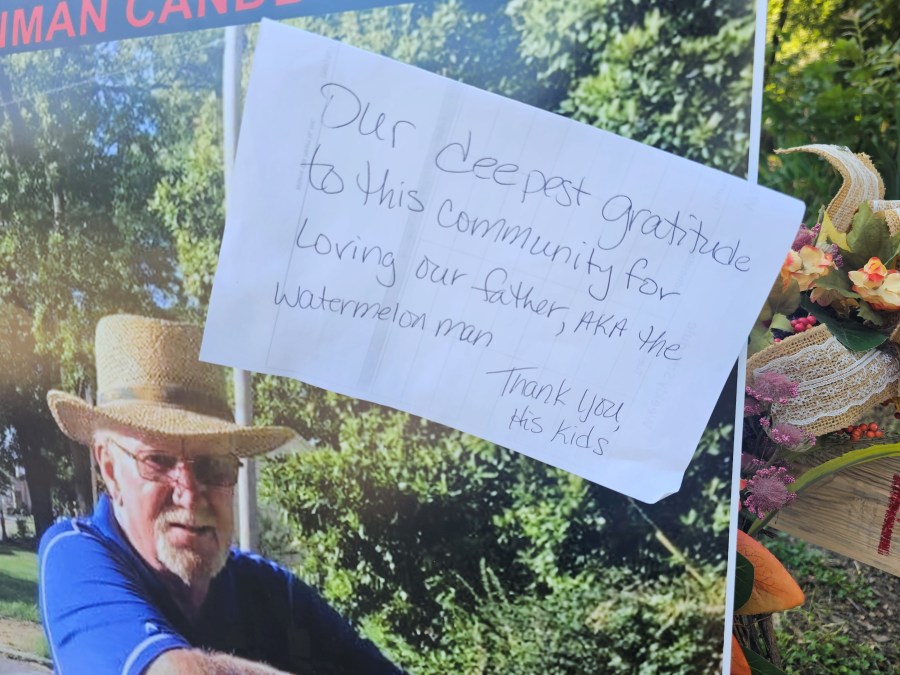 NMAN
Our deepest gratitude
to this community for
Loving our father, AKA the
Watermelon man
Thank you,
His Kids